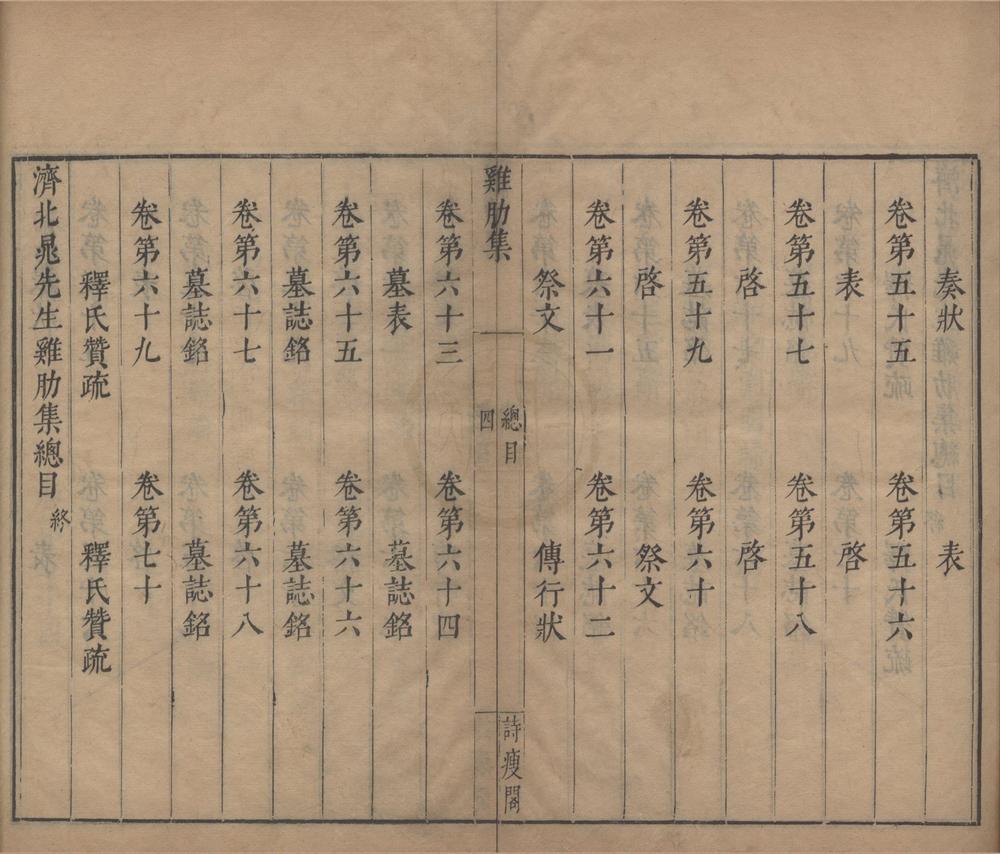 奏狀　表
卷第五十五　卷第五十六
表　啓
卷第五十七　卷第五十八
啓　啓
卷第五十九　卷第六十
啓　祭文
卷第六十一　卷第六十二
祭文　傳行狀
雞肋集　總目　四　詩瘦閣
卷第六十三　卷第六十四
墓表　墓誌銘
卷第六十五　卷第六十六
墓誌銘　墓誌銘
卷第六十七　卷第六十八
墓誌銘　墓誌銘
卷第六十九　卷第七十
釋氏贊疏　釋氏贊疏
濟北晁先生雞肋集總目終